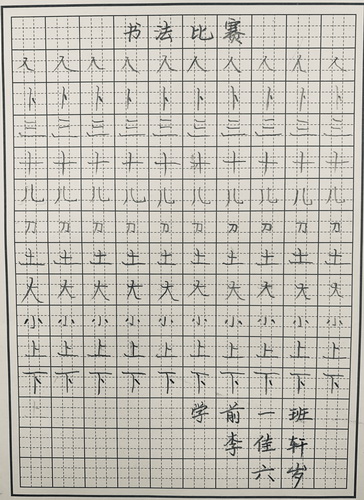 书法比赛
人人人人人人人人人人
卜卜卜卜卜卜卜卜卜卜
三三三三三三三三三三
十十十十十十十十十十
儿儿儿儿儿儿儿儿儿儿
刀刀刀刀刀刀刀刀刀刀
土土土土土土土土土土
大大大大大大大大大大
小小小小小小小小小小
上上上上上上上上上上
下下下下下下下下下下
学前一班
李佳轩
六岁